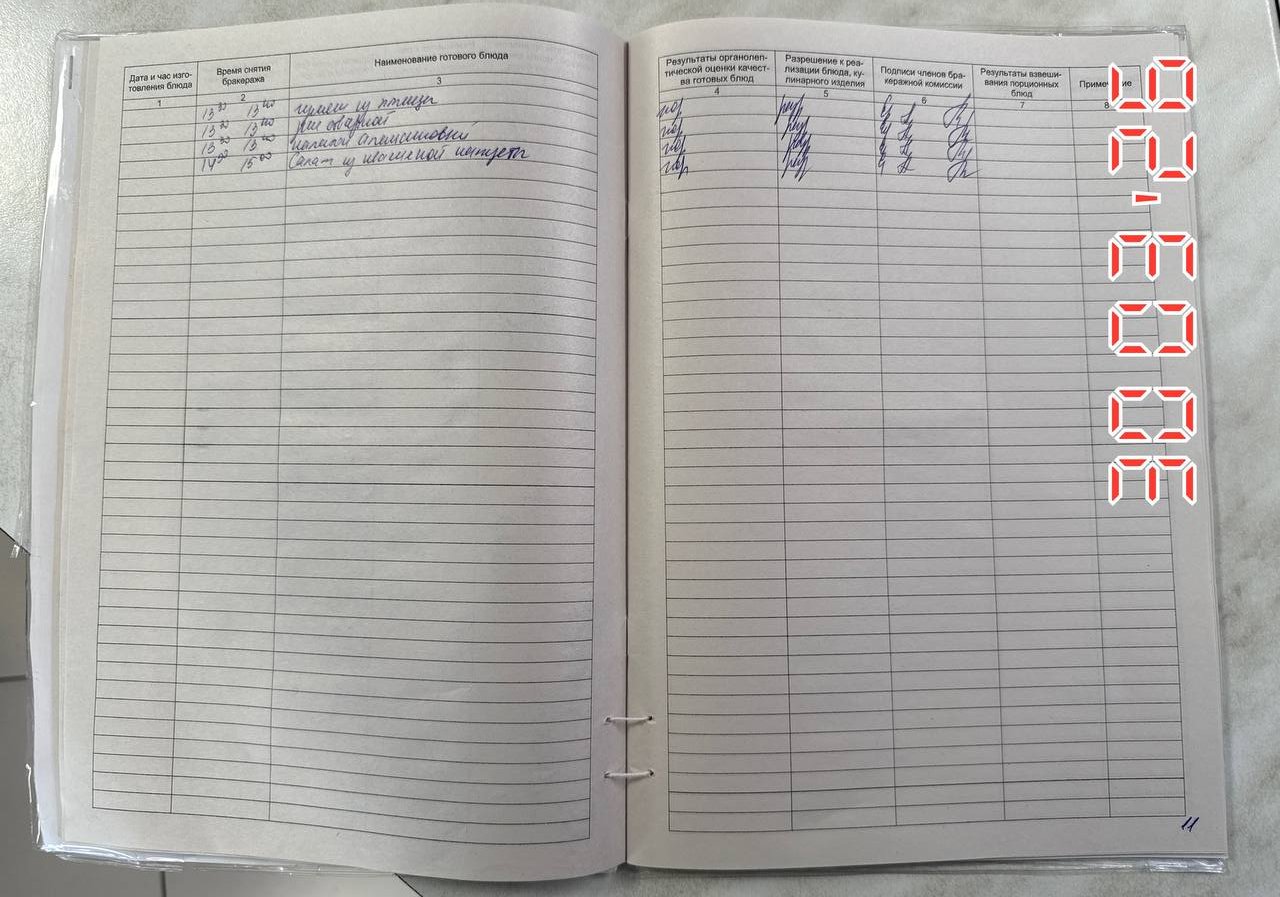 Дата и час изго-
товления блюда
Время снятия
бракеража
Наименование готового блюда
1
2
3
13³⁰ 13⁴⁰ гуляш из птицы
13²⁰ 13⁴⁰ рис отварной
13³⁰ 13⁴⁰ напиток апельсиновый
14⁰⁰ 15⁰⁰ Салат из квашеной капусты
Результаты органолеп-
тической оценки качест-
ва готовых блюд
Разрешение к реа-
лизации блюда, ку-
линарного изделия
Подписи членов бра-
керажной комиссии
Результаты взвеши-
вания порционных
блюд
4
5
6
7
8
хор разр
хор разр
хор разр
хор разр
11
30 03 '26